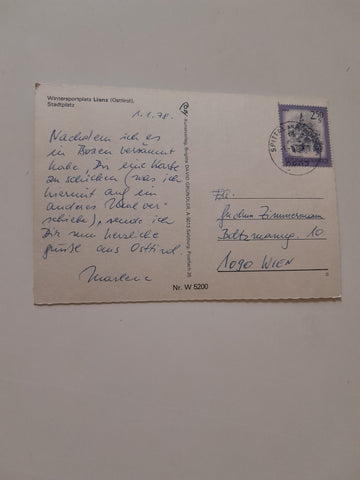 Wintersportplatz Lienz (Osttirol),
Stadtplatz
1.1.78.
Nachdem ich es
in Bozen versäumt
habe, Dir eine Karte
zu schicken (was ich
hiermit auf ein
anderes Mal ver-
schiebe), sende ich
Dir nun herzliche
Grüße aus Osttirol.
Marlene
Kunstverlag Brigitte
A-5013 Salzburg, Postfach 35
Nr. W 5200
2.50
SPITTAL
Zimmermann
Boltzmanng. 10
1090 WIEN